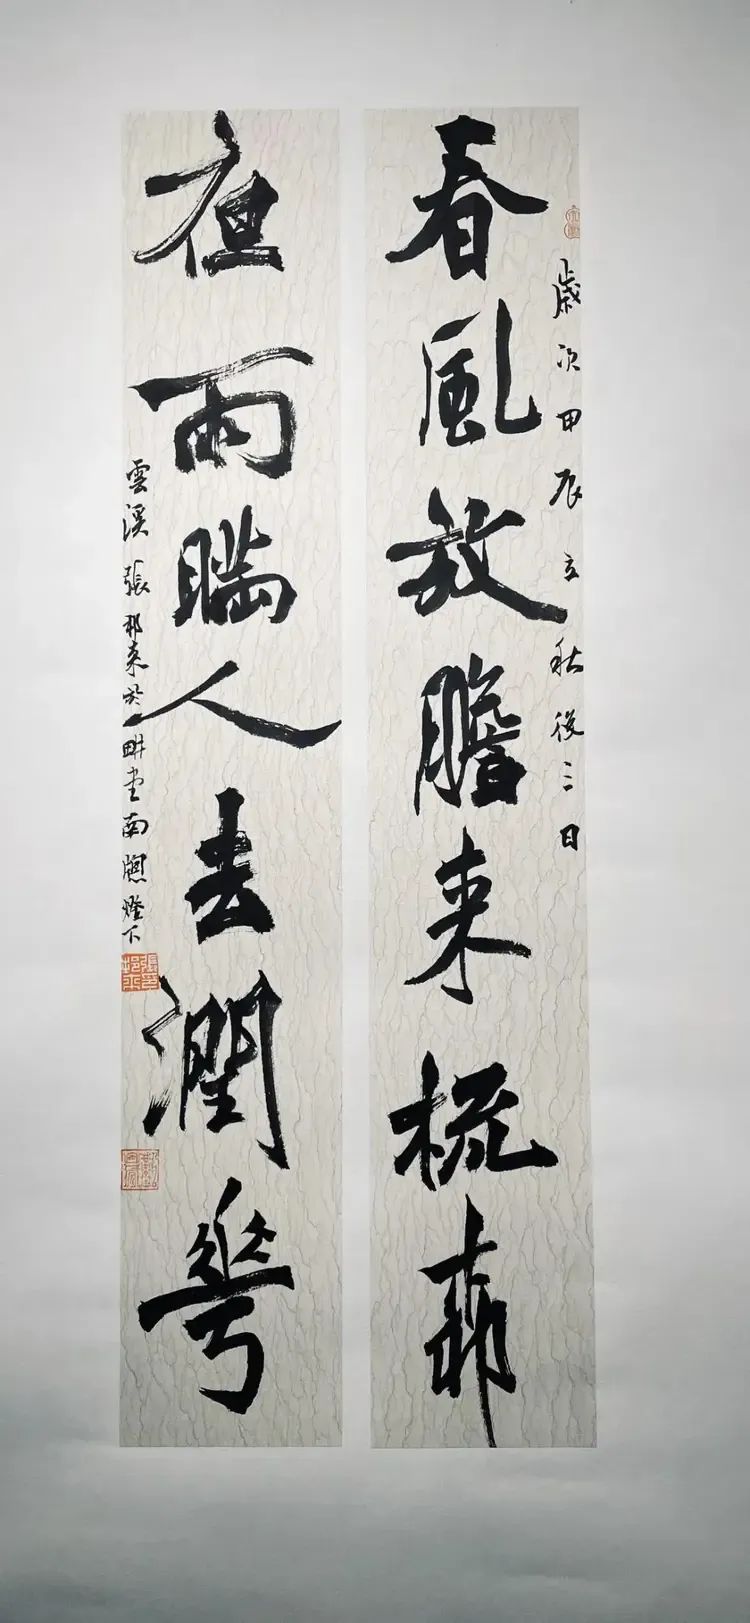 歲次甲辰立秋後三日
春風放膽來梳柳
夜雨瞞人去潤花
雲溪張於一畊堂南牕燈下